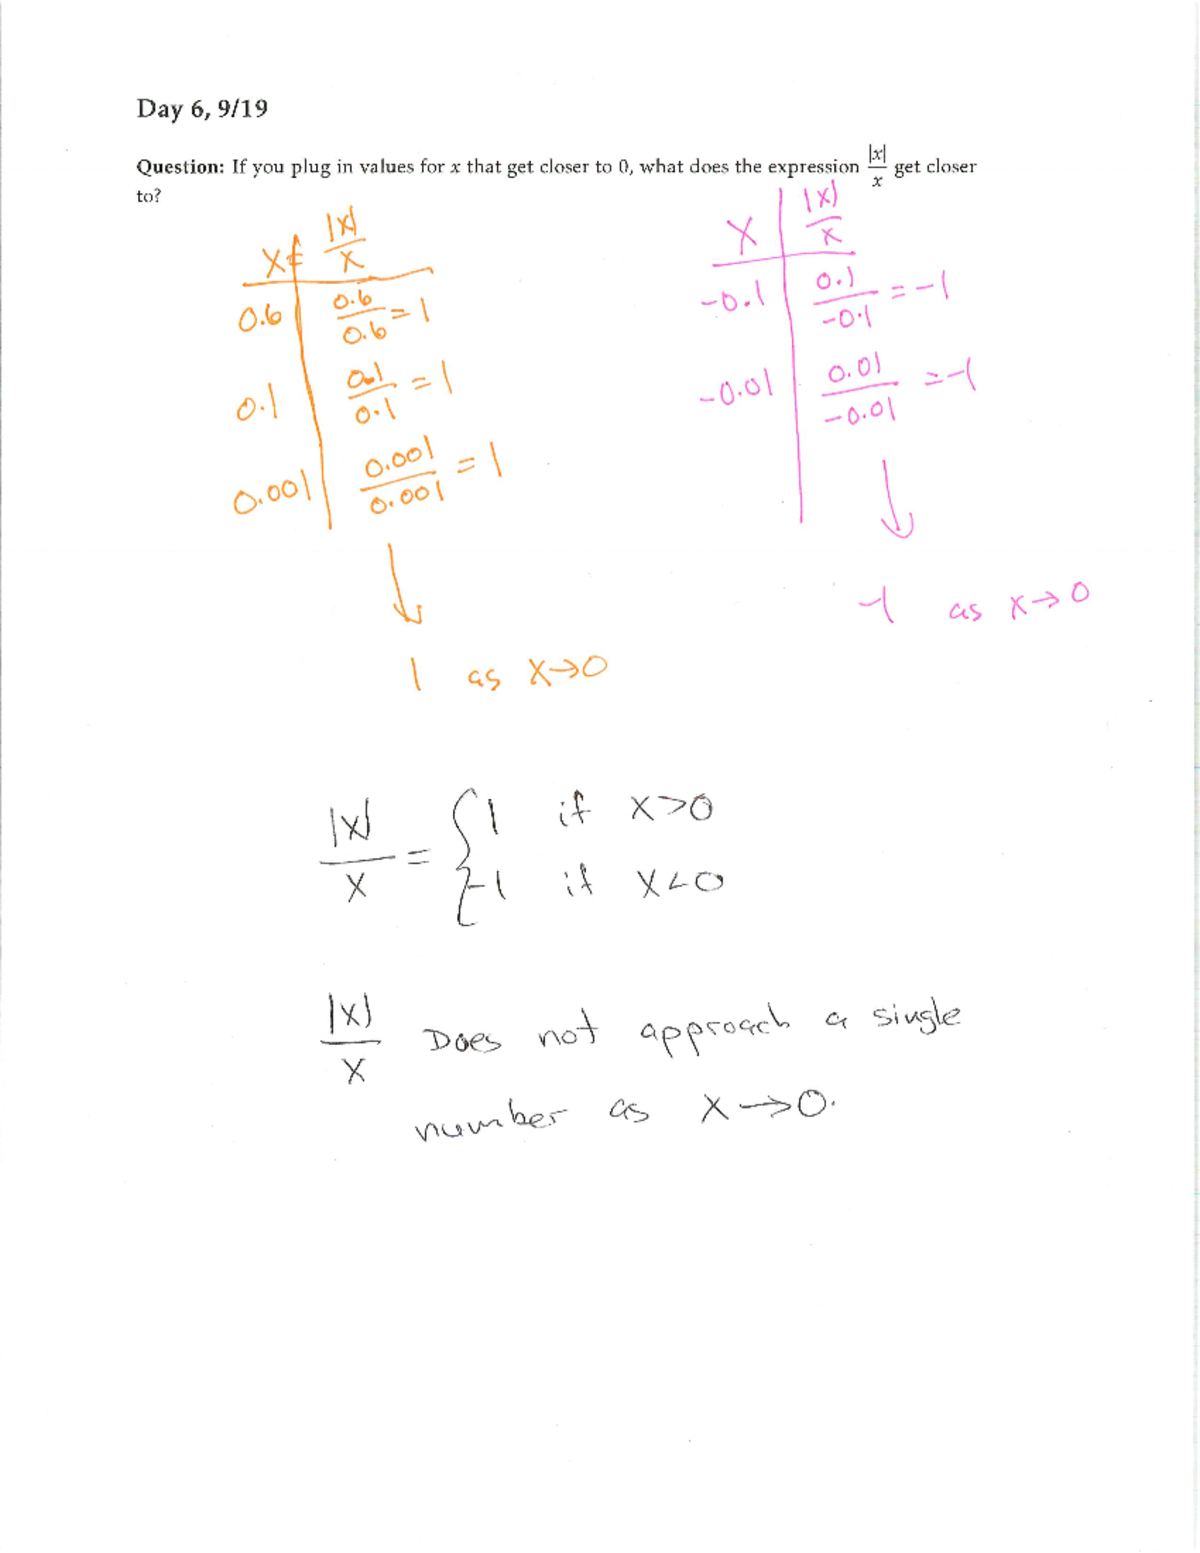 Day 6, 9/19
Question: If you plug in values for x that get closer to 0, what does the expression |x|/x get closer
to?
x |x|/x
0.6 0.6/0.6 = 1
0.1 0.1/0.1 = 1
0.001 0.001/0.001 = 1
↓
1 as x→0
x |x|/x
-0.1 0.1/-0.1 = -1
-0.01 0.01/-0.01 = -1
↓
-1 as x→0
|x|/x = { 1 if x>0
-1 if x<0
|x|/x Does not approach a single
number as x→0.